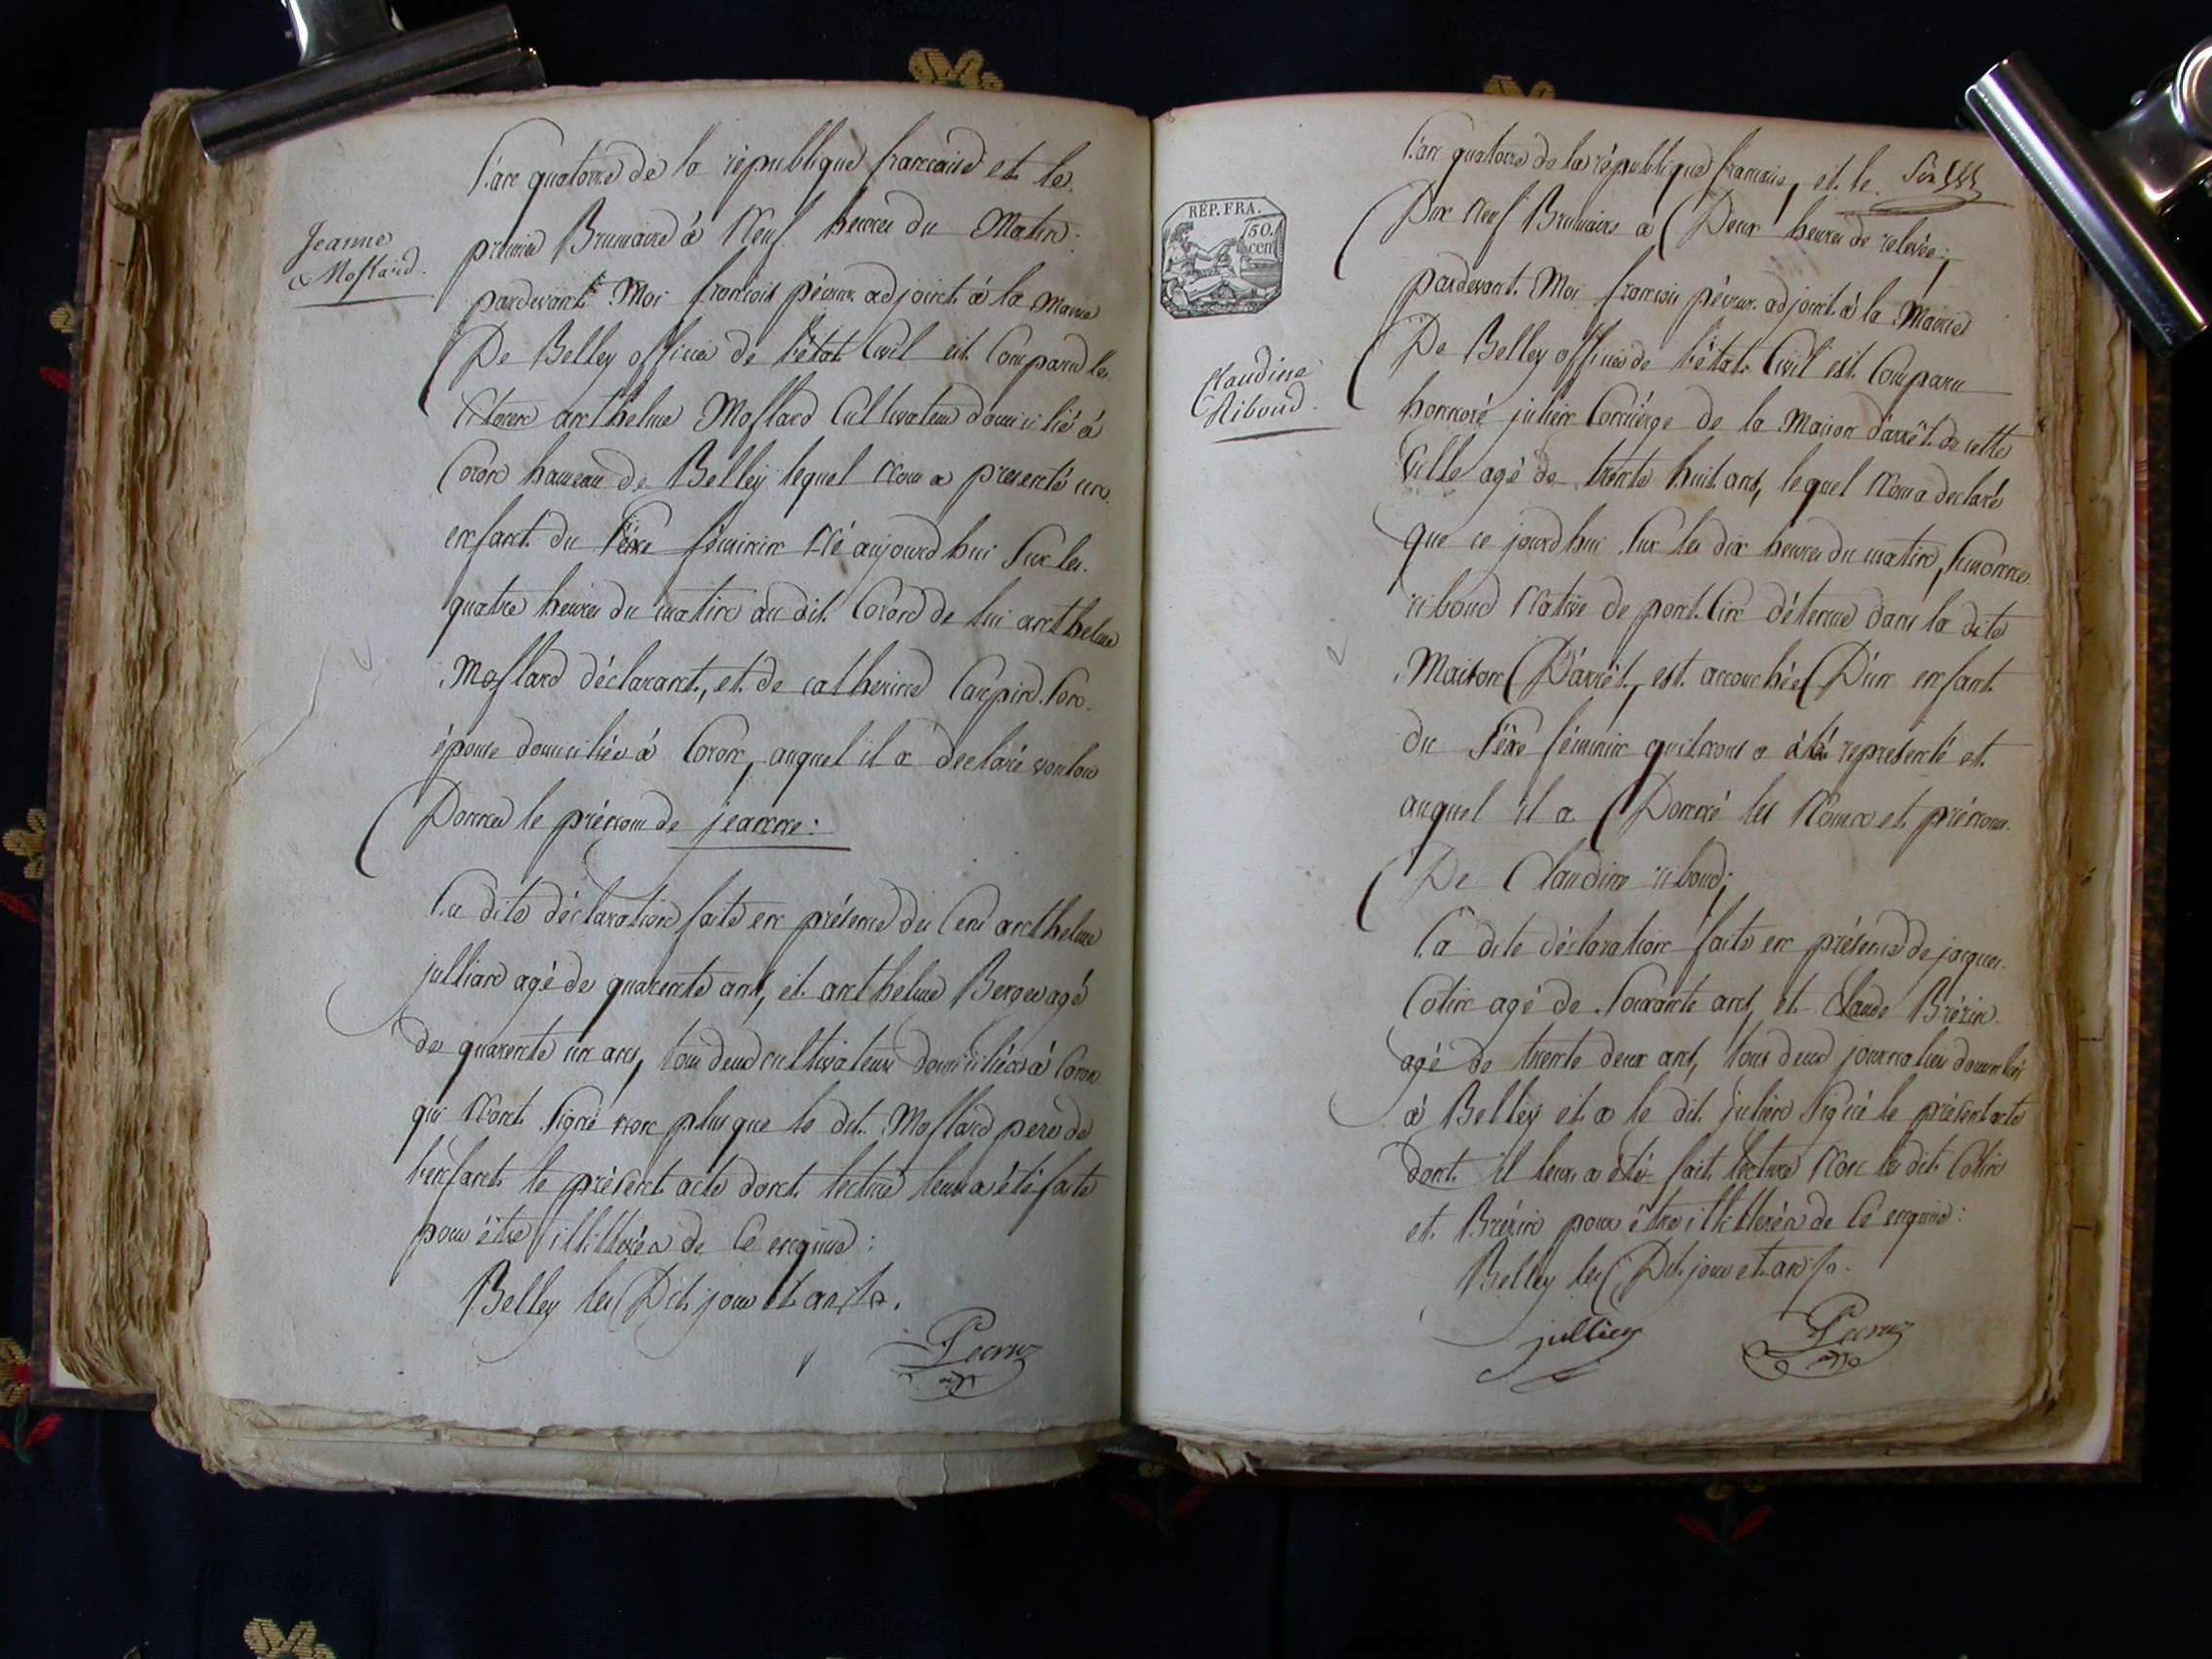 Jeanne
Mostard.
L'an quatorze de la république francaise et le
premier Brumaire à Neuf heures du Matin:
pardevant Moi francois pécour adjoint à la Mairie
De Belley officier de l'état Civil est Comparu le
Citoien anthelme Mostard Cultivateur domicilié à
Coron hameau de Belley lequel Nous a presenté un
enfant du Séxe féminin Né aujourd hui Sur les
quatre heures du matin au dit Coron de lui anthelme
Mostard déclarant, et de catherine Carpin Son
épouse domiciliée à Coron, auquel il a declaré vouloir
Donner le prénom de jeanne:
La dite déclaration faite en présence des Cens anthelme
julliand agé de quarente ans, et anthelme Berger agé
de quarente un ans, tous deux cultivateurs domiciliés à Coron
qui N'ont Signé non plus que le dit Mostard pere de
l'enfant le présent acte dont lecture leur a été faite
pour étre illittérés de Ce enquis:
Belley les Dit jour et an
REP. FRA.
50.
cent
Claudine
Riboud.
L'an quatorze de la république francaise, et le
Dix Neuf Brumaire à Deux heures de relevée;
pardevant Moi francois pécour adjoint à la Mairie
De Belley officier de l'état Civil est Comparu
honnoré julien Concièrge de la Maison d'arrêt de cette
Ville agé de trente huit ans, lequel Nous a declaré
que ce jourdhui Sur les dix heures du matin, Simonne
riboud Native de pont d'ain détenue dans la dite
Maison D'arrêt, est accouchée D'un enfant
du Séxe féminin qui nous a été representé et
auquel il a Donné les Noms et prénoms
De Claudine riboud;
La dite déclaration faite en présence de jacques
Cotin agé de Soixante ans, et Claude Brézin
agé de trente deux ans, tous deux journaliers domiciliés
à Belley et a le dit julien Signé le présent acte
dont il leur a été fait lecture Non les dit Cotin
et Brézin pour étre illittérés de Cé enquis:
Belley les Dit jour et an
jullien